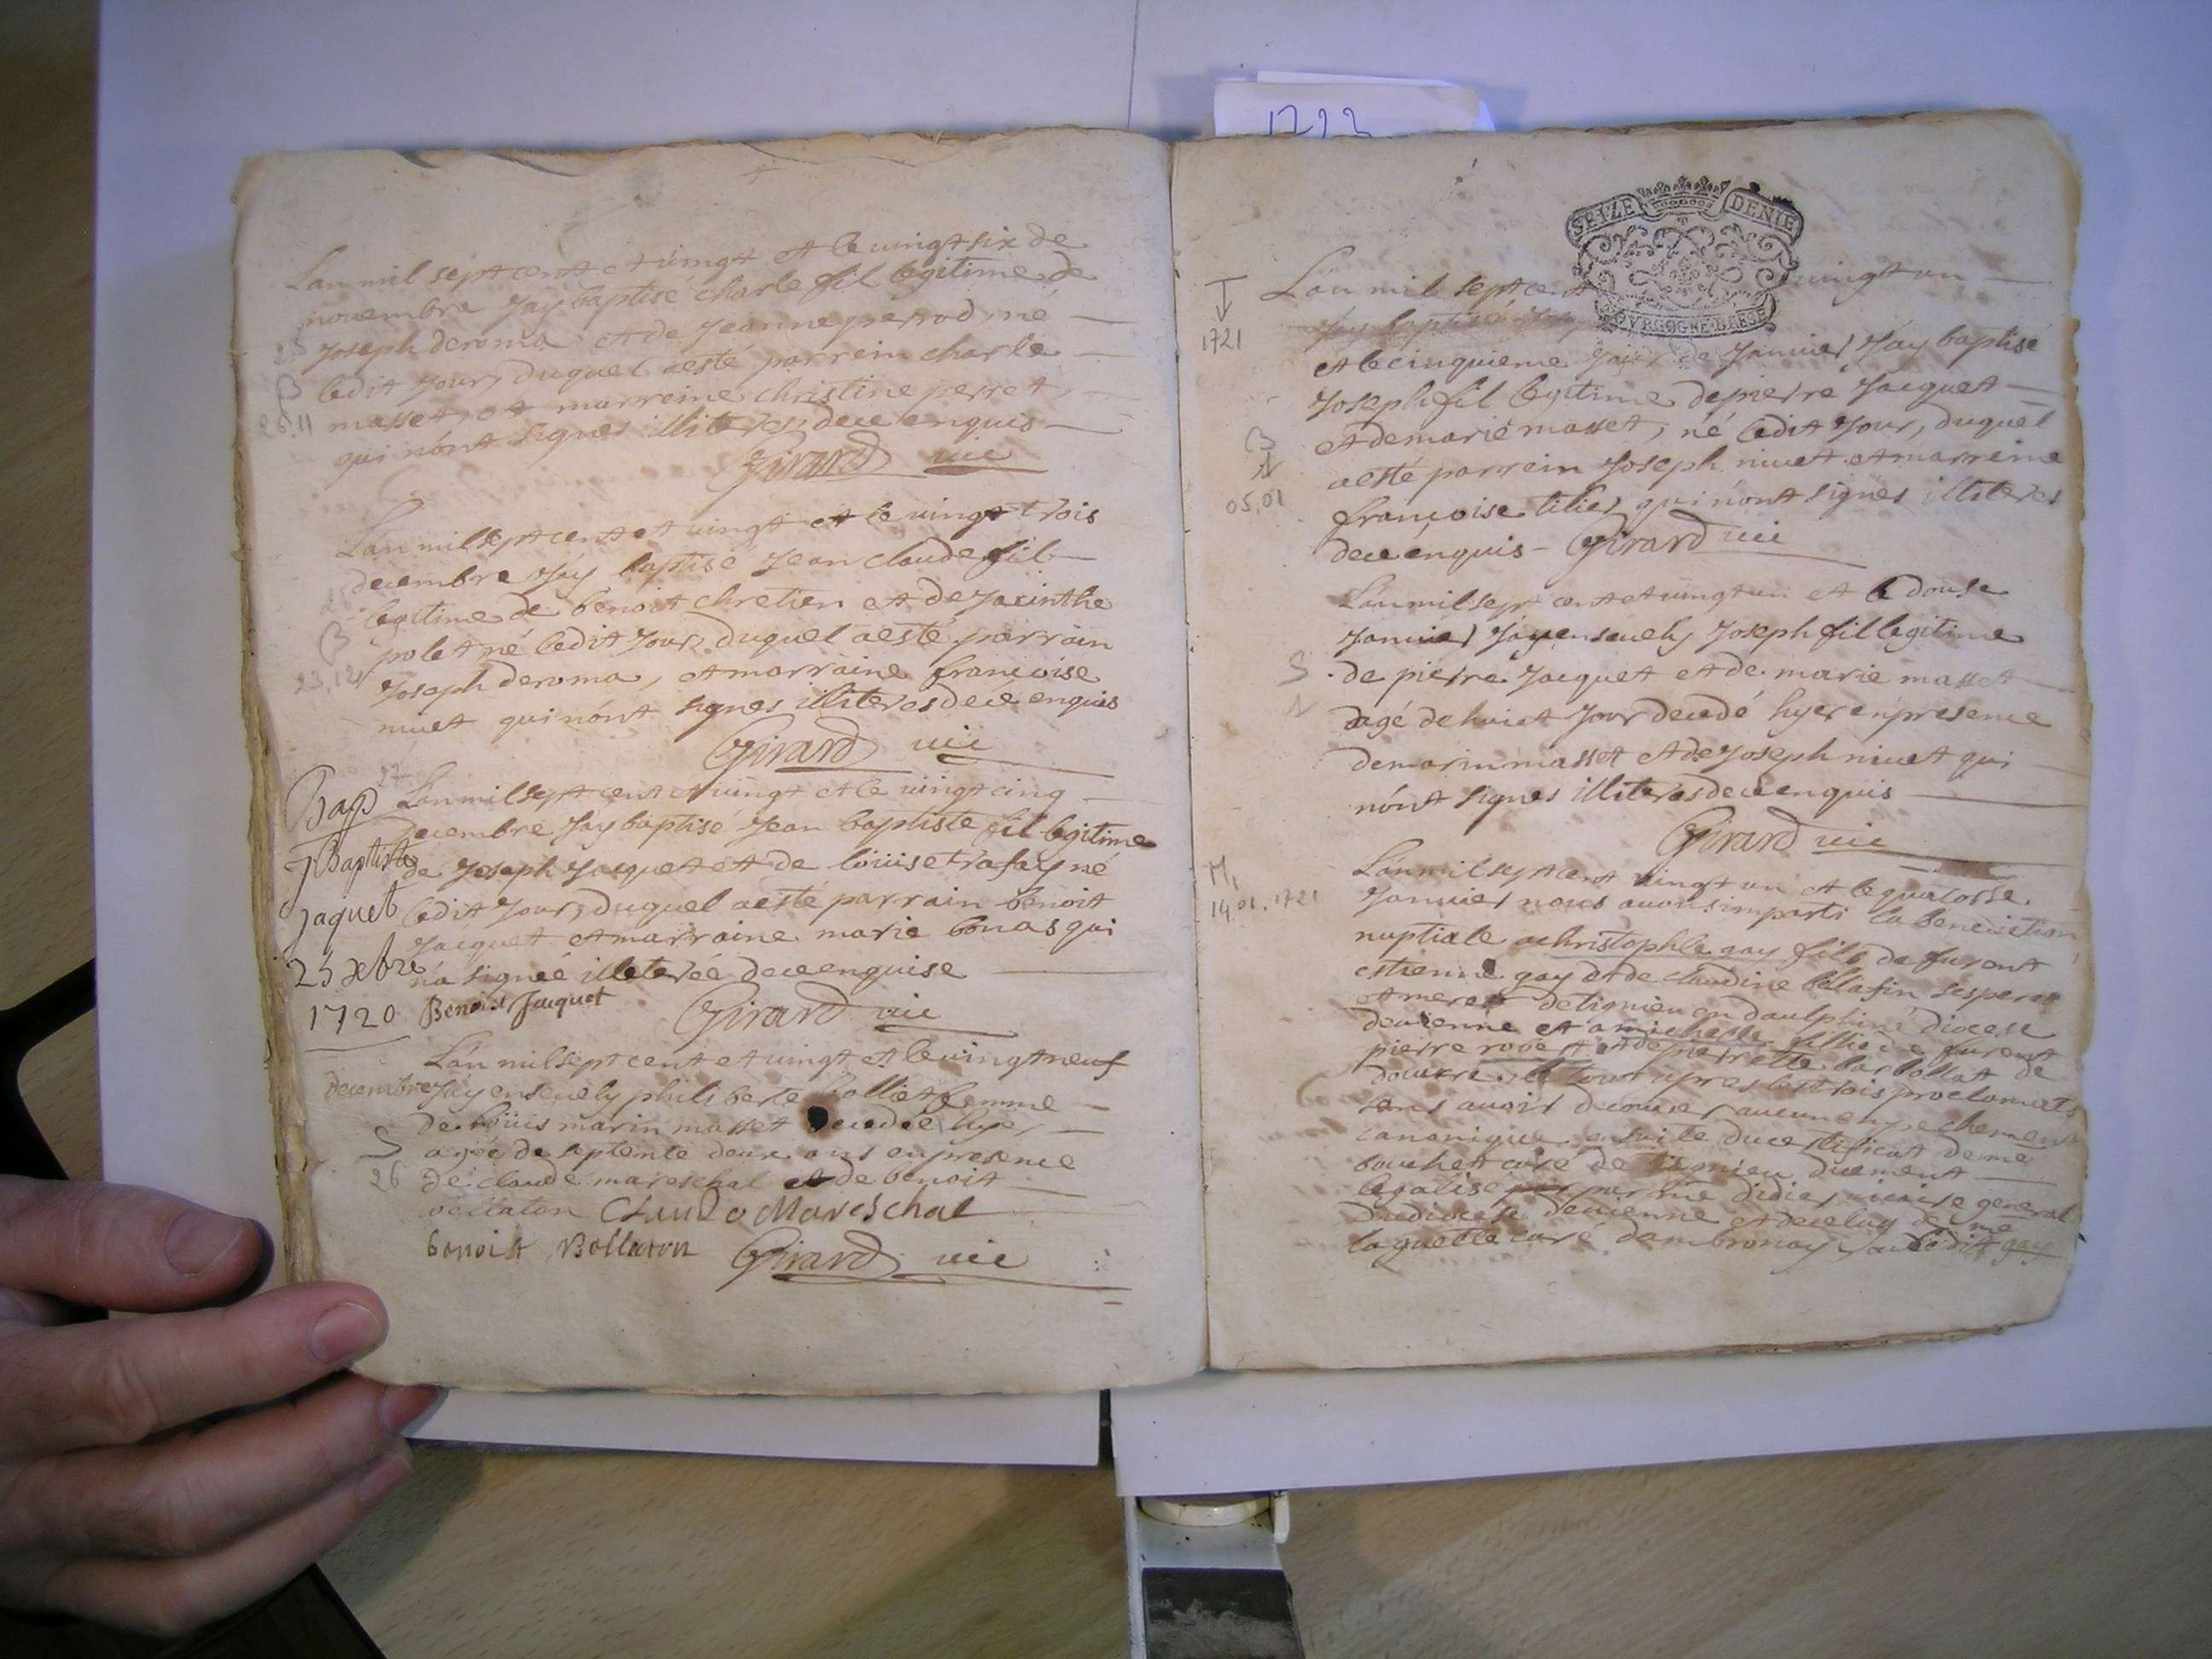 1723
Lan mil sept cent et vingt et le vingt six de
novembre Jay baptisé charle fil legitime de
Joseph deroma et de Jeanne perrod né
ledit Jour, duquel a esté parrein charle
B
26.11
masset, et marreine christine perret,
qui nónt signes illiteres de ce enquis
Girard vic
Lán mil sept cent et vingt et le vingt trois
decembre Jáy baptisé Jean claude fil
legitime de benoit chretien et de Jacinthe
B
23.12
polet né ledit Jour duquel a esté parrain
Joseph deroma, et marraine françoise
nivet qui nónt signes illiteres de ce enquis
Girard vic
Bap
J Baptiste
Jaquet
25 xbre
1720
27
Lan mil sept cent et vingt et le vingt cinq
decembre Jay baptisé Jean baptiste fil legitime
de Joseph Jacquet et de loüise trafay né
ledit Jour, duquel a esté parrain benoit
Jacquet et marraine marie bonas qui
ná signeé illeterée de ce enquise
Benoist Jacquet Girard vic
Lán mil sept cent et vingt et le vingt neuf
decembre Jay ensevely philiberte Collet femme
de loüis marin masset decedée hyer
S
26
agée de septente deux ans en presence
de claude mareschal et de benoit
bellaton Claude Mareschal
benoist Bollaton Girard vic
SEIZE DENIE
BOVRGOGNE BRESSE
1721
Lán mil sept cent vingt un
Jay baptisé
et le cinquieme Jour de Janvier Jáy baptisé
Joseph fil legitime de pierre Jacquet
et de marie masset, né ledit Jour, duquel
B
N
05.01
a esté parrein Joseph nivet et marreine
françoise tilier qui nónt signes illiteres
de ce enquis - Girard vic
Lán mil sept cent et vingt un et le douse
Janvier Jáy ensevely Joseph fil legitime
S
N
de pierre Jacquet et de marie masset
agé de huict Jour decedé hyer en presence
de marin masset et de Joseph nivet qui
nónt signes illiteres de ce enquis
Girard vic
M.
14.01.1721
Lán mil sept cent vingt un et le quatorse
Janvier nous avons imparti la benediction
nuptiale a christophle gay fils de furent
estienne gay et de claudine belafin ses pere
et mere de tignieu en daulphiné diocese
de vienne et a michelle fillie de furent
pierre rovet et de pierrette barbollat de
douvre, le tout apres les trois proclomats
sans avoir decouver aucun enpechement
canonique ensuite du certificat de me
bouchet curé de tignieu duement
legalise par me didier vicaire general
du diocese de vienne et de celuy de me
laquette curé dambronay sur ledit gay